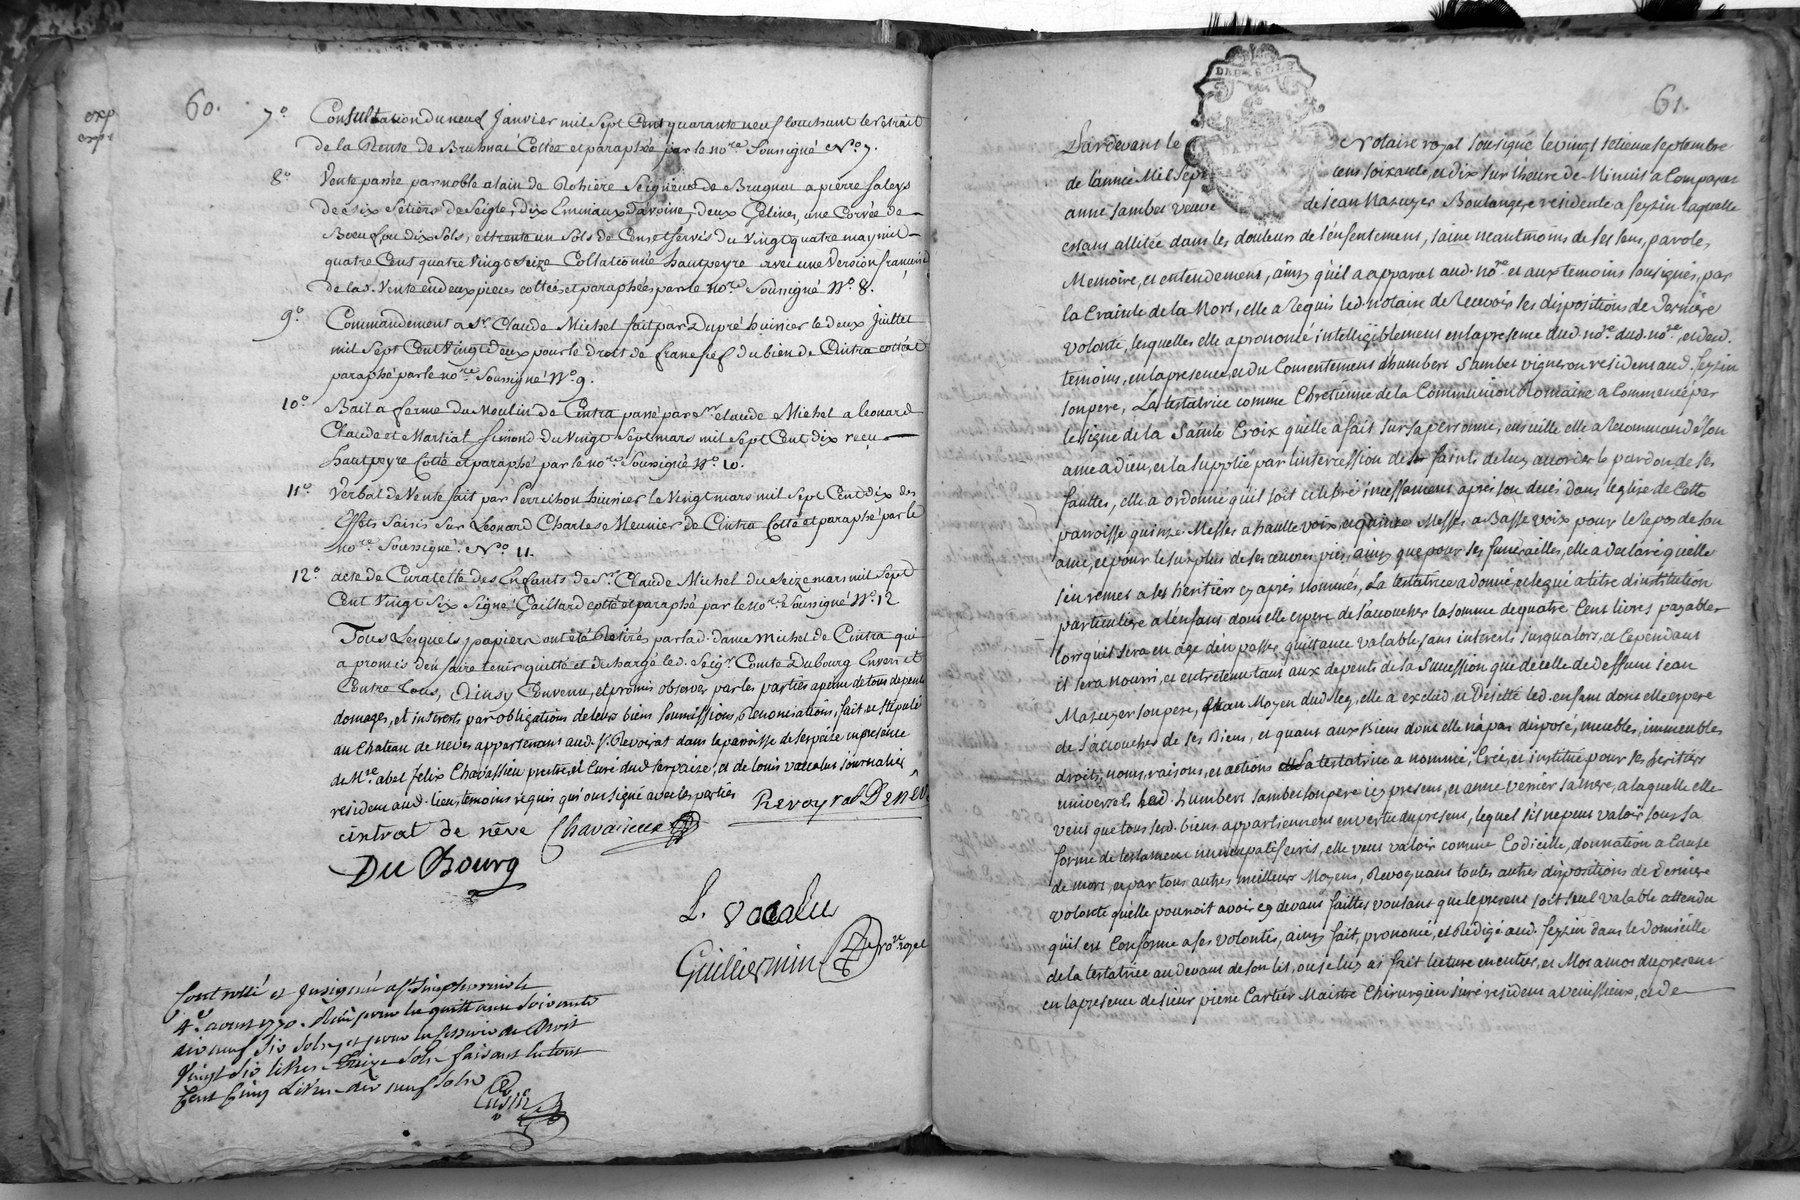 60.
exp
exp
7° Consultation du neuf Janvier mil Sept Cent quarante neuf touchant le retrait
de la Rente de Bruhnac Cottée et paraphée par le no.re Soussigné N.o 7.
8° Vente passée par noble alain de Rohiere Seigneur de Brugnac a pierre faleys
de six Setiers de Seigle, dix Eminaux d'avoine, deux Gelines, une Corvée de
Boeuf ou dix Sols, et trente un Sols de Cens et Servis du Vingt quatre may mil
quatre Cent quatre Vingt Seize Collationnée hautpeyre avec une Version francaise
de la d. Vente en deux pieces cottées et paraphées par le no.re Soussigné N.o 8.
9° Commandement a S.r Claude Michel fait par Dupré huissier le deux Juillet
mil Sept Cent Vingt deux pour le droit de francfief du bien de Cintra cotté et
paraphé par le no.re Soussigné N.o 9.
10° Bail a ferme du Moulin de Cintra passé par S.r Claude Michel a leonard
Claude et Martial Simond du Vingt Sept mars mil Sept Cent dix recu
hautpeyre Cotté et paraphé par le no.re Soussigné N.o 10.
11° Verbal de Vente fait par Perrichon huissier le Vingt mars mil Sept Cent dix des
Effets Saisis Sur Leonard Charles Meunier de Cintra Cotté et paraphé par le
no.re Soussigné N.o 11.
12° acte de Curatelle des Enfants de S.r Claude Michel du Seize mars mil Sept
Cent Vingt Six Signé Gaillard cotté et paraphé par le no.re Soussigné N.o 12
Tous Lesquels papiers ont été Retirés par lad. dame Michel de Cintra qui
a promis d'en faire tenir quitté et déchargé led. Seig.r Comte Dubourg Envers et
Contre tous, Ainsy Convenu, et promis observer par les parties a peine de tous depens
domages, et interests par obligations de leurs biens soumissions, Renonciations, fait et stipulé
au Chateau de neves appartenant aud. S.r Revoyrat dans la paroisse de Serpaize en presence
de M.re abel felix Chavassieu pretre, et Curé dud. Serpaize, et de louis vaccalus Journalier
resident aud. lieu, temoins requis qui ont signé avec les parties Revoyrat De nève
cintrat de nève Chavassieu
Du Bourg
L. vacalu
Guillermin no.re royal
Controllé et Insignué a St Simphorien le
4.e aoust 1770. Reçu pour la quittance soixante
dix neuf livres dix sols, et pour la
Vingt six livres Seize Sols faisant le tout
Cent Cinq Livres dix neuf Sols
61.
DEUX SOLS
Pardevant le Notaire royal sousigné le vingt setieme septembre
de l'année Mil sept cens soixante, et dix sur l'heure de Minuit a Comparet
anne Sambet veuve de Jean Mazuyer Boulangere residente a feyzin laquelle
estant allitée dans les douleurs de l'enfentement, saine neautmoins de ses sens, parole,
Memoire, et entendement, ainsy qu'il a apparut aud. no.re et aux temoins sousignés, par
la Crainte de la Mort, elle a Requis led. notaire de Recevoir ses dispositions de derniere
volonté, lesquelles elle a prononcé intelligiblement en la presence dud. no.re dud. no.re, et desd.
temoins, en la presence, et du Consentement d'humbert Sambet vigneron resident aud. feyzin
son pere, La testatrice comme Chretienne de la Communion Romaine a Commencé par
le signe de la Sainte Croix qu'elle a fait sur sa personne, ensuitte elle a Recommandé son
ame a Dieu, et la supplié par l'intercession de ses saints de luy accorder le pardon de ses
fauttes, elle a ordonné qu'il soit celebré incessament aprés son decés dans l'eglise de Cette
parroisse quinze Messes a haulte voix, et quinze Messes a Basse voix pour le Repos de son
ame, et pour le surplus de ses oeuvres pies, ainsy que pour ses funerailles, elle a declaré qu'elle
s'en remet a ses heritiers cy aprés nommés, La testatrice a donné, et legué a titre d'institution
particuliere a l'enfant dont elle espere de s'accoucher la somme de quatre Cent livres payables
lorsqu'il sera en âge d'en passer quittance valable sans interets jusqu'alors, et Cependant
il sera nourri, et entretenu tant aux depents de sa succession que de celle de deffunt Jean
Mazuyer son pere, et au Moyen dud. leg, elle a exclud, et Desisté led. enfant dont elle espere
de s'accoucher de ses Biens, et quant aux Biens dont elle n'a pas disposé, meubles, immeubles
droits, noms, raisons, et actions La testatrice a nommé, Créé, et institué pour ses heritiers
universels led. humbert sambet son pere icy present, et anne verrier sa mere, a laquelle elle
veut que tous sesd. biens appartiennent en vertu du present, lequel s'il ne peut valoir sous la
forme de testament nuncupatif ecrit, elle veut valoir comme Codicille, donnation a Cause
de mort, et par tous autres meilleurs Moyens, Revoquant toutes autres dispositions de derniere
volonté qu'elle pourroit avoir cy devant faittes voulant que le present soit seul valable attendu
qu'il est Conforme a ses volontés, ainsy fait, prononcé, et Redigé aud. feyzin dans le Domicille
de la testatrice au devant de son lit, ou je luy ai fait lecture en entier, et Mot a mot du present
en la presence de sieur pierre Cartier Maistre Chirurgien juré resident a venissieux, et de